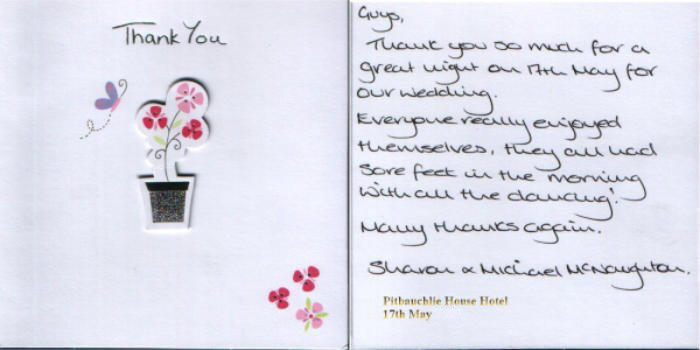 Thank You
Guys,
Thank you so much for a
great night on 17th May for
our wedding.
Everyone really enjoyed
themselves, they all had
sore feet in the morning
with all the dancing!
Many thanks again.
Sharon & Michael McNaughton.
Pitbauchlie House Hotel
17th May